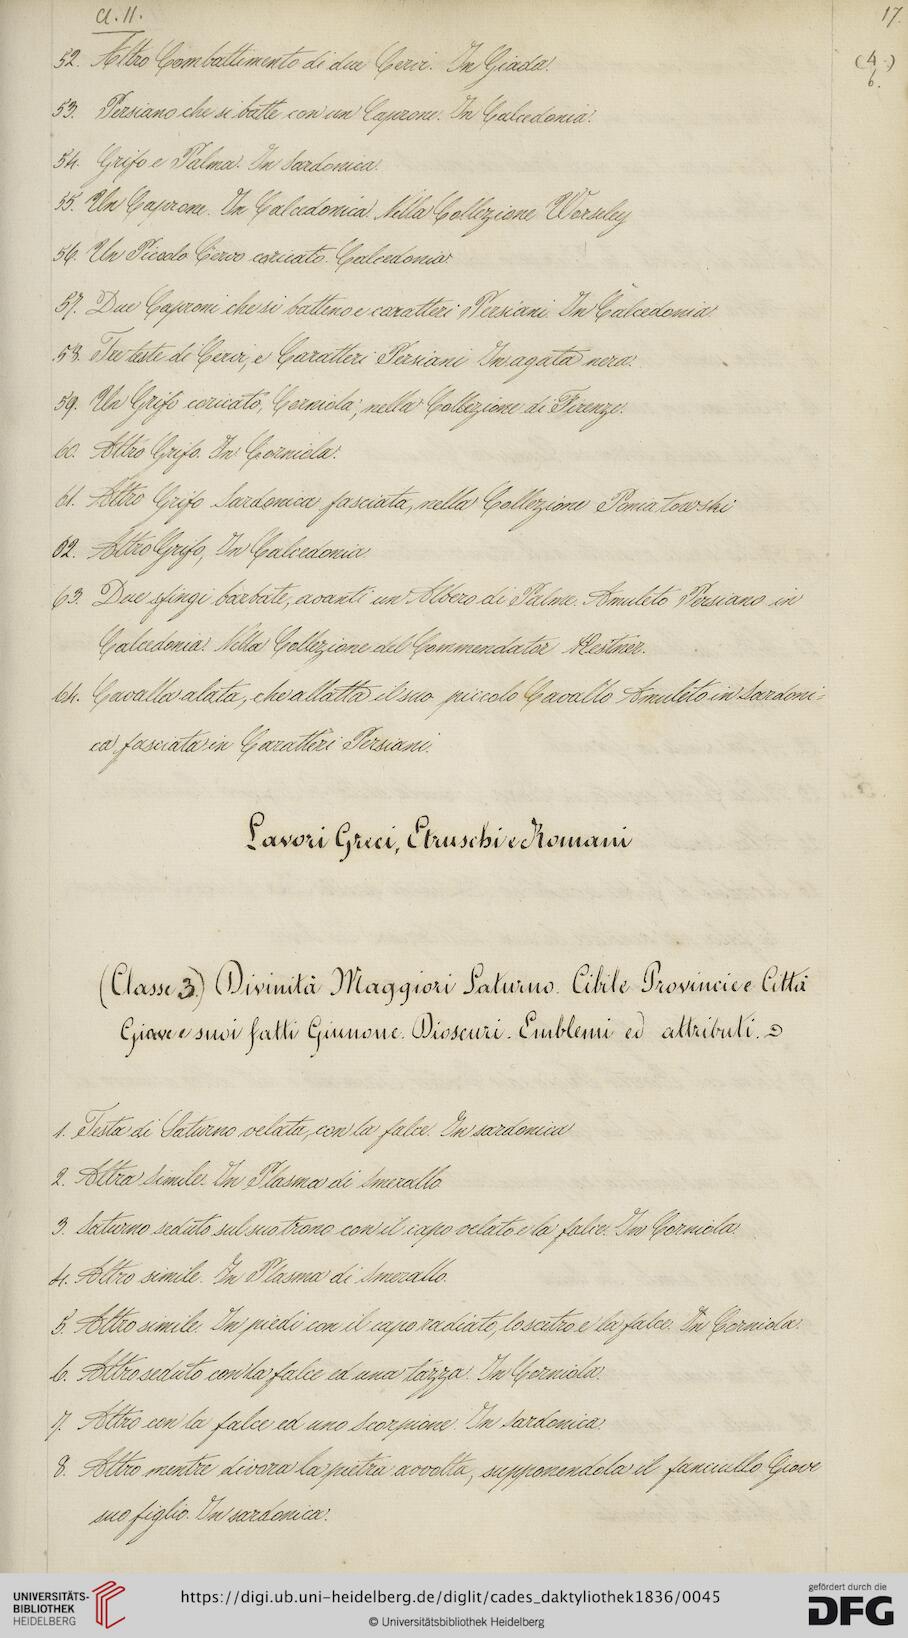 Cl. II.
17.
52. Altro Combattimento di due Cervi. In Giada.
(4.)
6.
53. Persiano che si batte con un Caprone. In Calcedonia.
54. Grifo e Palma. In Sardonica.
55. Un Caprone. In Calcedonica. Nella Collezione Worseley
56. Un Piccolo Cervo coricato. Calcedonia
57. Due Caproni che si batteno e caratteri Persiani. In Calcedonia
58. Tre teste di Cervi, e Caratteri Persiani In agata nera.
59. Un Grifo coricato, Corniola, nella Collezione di Firenze.
60. Altro Grifo. In Corniola.
61. Altro Grifo Sardonica fasciata, nella Collezione Poniatowski
62. Altro Grifo, In Calcedonia
63. Due sfingi barbate, avanti un Albero di Palme. Amuleto Persiano in
Calcedonia. Nella Collezione del Commendator Kestner.
64. Cavalla alata, che allatta il suo piccolo Cavallo Amuleto in Sardoni-
ca fasciata in Caratteri Persiani.
Lavori Greci, Etruschi e Romani
(Classe 3.) Divinità Maggiori Saturno. Cibile Provincie e Città
Giove e suoi fatti Giunone. Dioscuri. Emblemi ed attributi.
1. Testa di Saturno velata, con la falce. In sardonica
2. Altra simile. In Plasma di Smeraldo
3. Saturno seduto sul suo trono con il capo velato e la falce. In Corniola.
4. Altro simile. In Plasma di Smeraldo.
5. Altro simile. In piedi con il capo radiato, lo scetro e la falce. In Corniola.
6. Altro seduto con la falce ed una tazza. In Corniola.
7. Altro con la falce ed uno Scorpione. In Sardonica.
8. Altro mentre divora la pietra avvolta, supponendola il fanciullo Giove
suo figlio. In sardonica.
UNIVERSITÄTS-
BIBLIOTHEK
HEIDELBERG
https://digi.ub.uni-heidelberg.de/diglit/cades_daktyliothek1836/0045
© Universitätsbibliothek Heidelberg
gefördert durch die
DFG